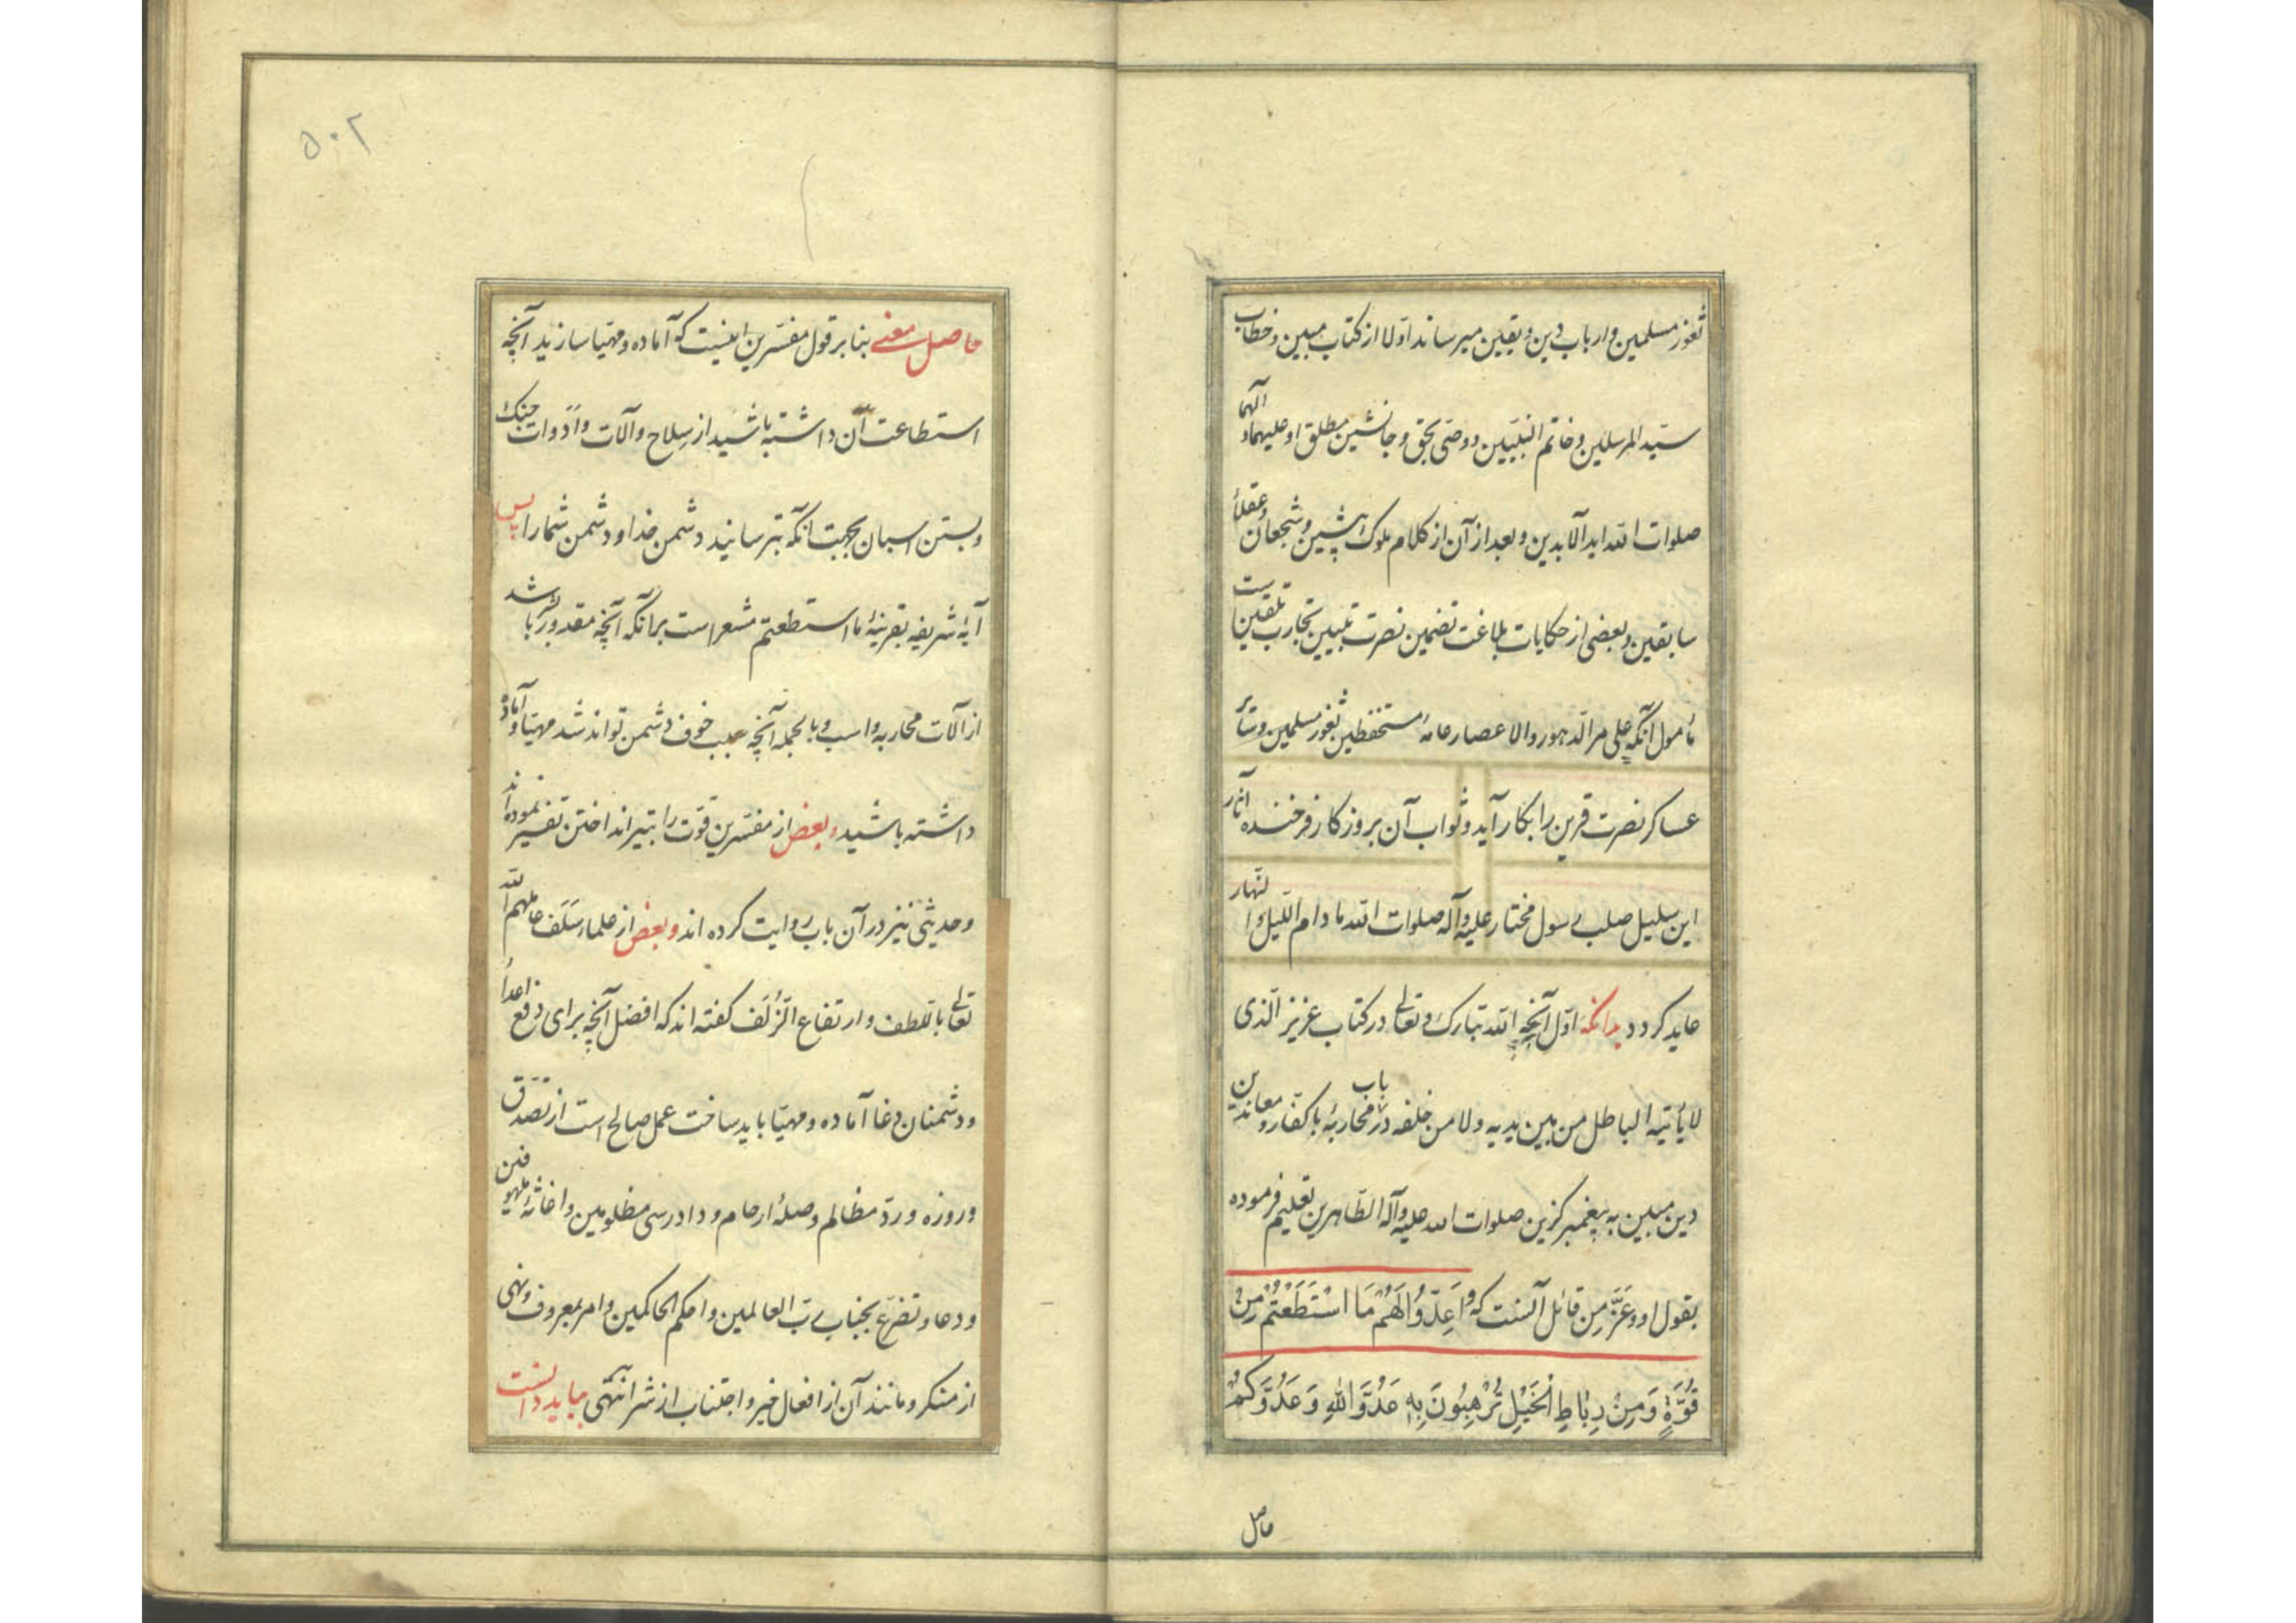 ثغور مسلمین و ارباب دین و یقین میرساند اولا از کتاب مبین و خطاب
سیّد المرسلین و خاتم النبیین و وصی بحق و جانشین مطلق او علیهما و الهما
صلوات الله ابد الآبدین و بعد از آن از کلام ملوک پیشین و شجعان و عقلأ
سابقین و بعضی از حکایات بلاغت تضمین نصرت تبیین تجارب تلقین است
مأمول آنکه علی مر الدهور و الاعصار عامهٔ مستحفظین ثغور مسلمین و سائر
عساکر نصرت قرین را بکار آید و ثواب آن بروزکار فرخنده آثار
این سلیل صلب رسول مختار علیه و آله صلوات الله ما دام اللیل و النهار
عاید کردد بدانکه اوّل آنچه الله تبارک و تعالی در کتاب عزیز الّذی
لا یأتیه الباطل من بین یدیه و لا من خلفه در باب محاربهٔ با کفّار و معاندین
دین مبین به پیغمبر کزین صلوات الله علیه و آله الطّاهرین تعلیم فرموده
بقوله و عَزَّ مِن قائل آنست که وَاَعِدّوُا لَهُمْ مَا اسْتَطَعْتُمْ مِنْ
قُوَّةٍ وَمِنْ رِبٰاطِ الْخَیْلِ تُرْهِبُونَ بِهِ عَدُوَّ اللهِ وَ عَدُوَّکُمْ
حاصل
۵۰۲
حاصل معنی بنا بر قول مفسّرین اینست که آماده و مهیّا سازید آنچه
استطاعت آن داشته باشید از سلاح و آلات و اَدَوات جنک
و بستن اسبان بجهت آنکه بترسانید دشمن خدا و دشمن شما را پس
آیهٔ شریفه بقرینهٔ ما استطعتم مشعر است بر آنکه آنچه مقدور باشد
از آلات محاربه و اسب و بالجمله آنچه سبب خوف دشمن تواند شد مهیّا و آماده
داشته باشید و بعضی از مفسّرین قوّت را بتیر انداختن تفسیر نموده اند
و حدیثی نیز در آن باب روایت کرده اند و بعضی از علماء سَلَف عاملهم الله
تعالی باللطف و ارتفاع الزُلَف کفته اند که افضل آنچه برای دفع اعدأ
و دشمنان دغا آماده و مهیّا باید ساخت عمل صالح است از تصدّق
و روزه و ردّ مظالم و صلهٔ ارحام و دادرسی مظلومین و اغاثهٔ ملهوفین
و دعا و تضرّع بجناب ربّ العالمین و احکم الحاکمین و امر بمعروف و نهی
از منکر و مانند آن از افعال خیر و اجتناب از شر انتهی بباید دانست